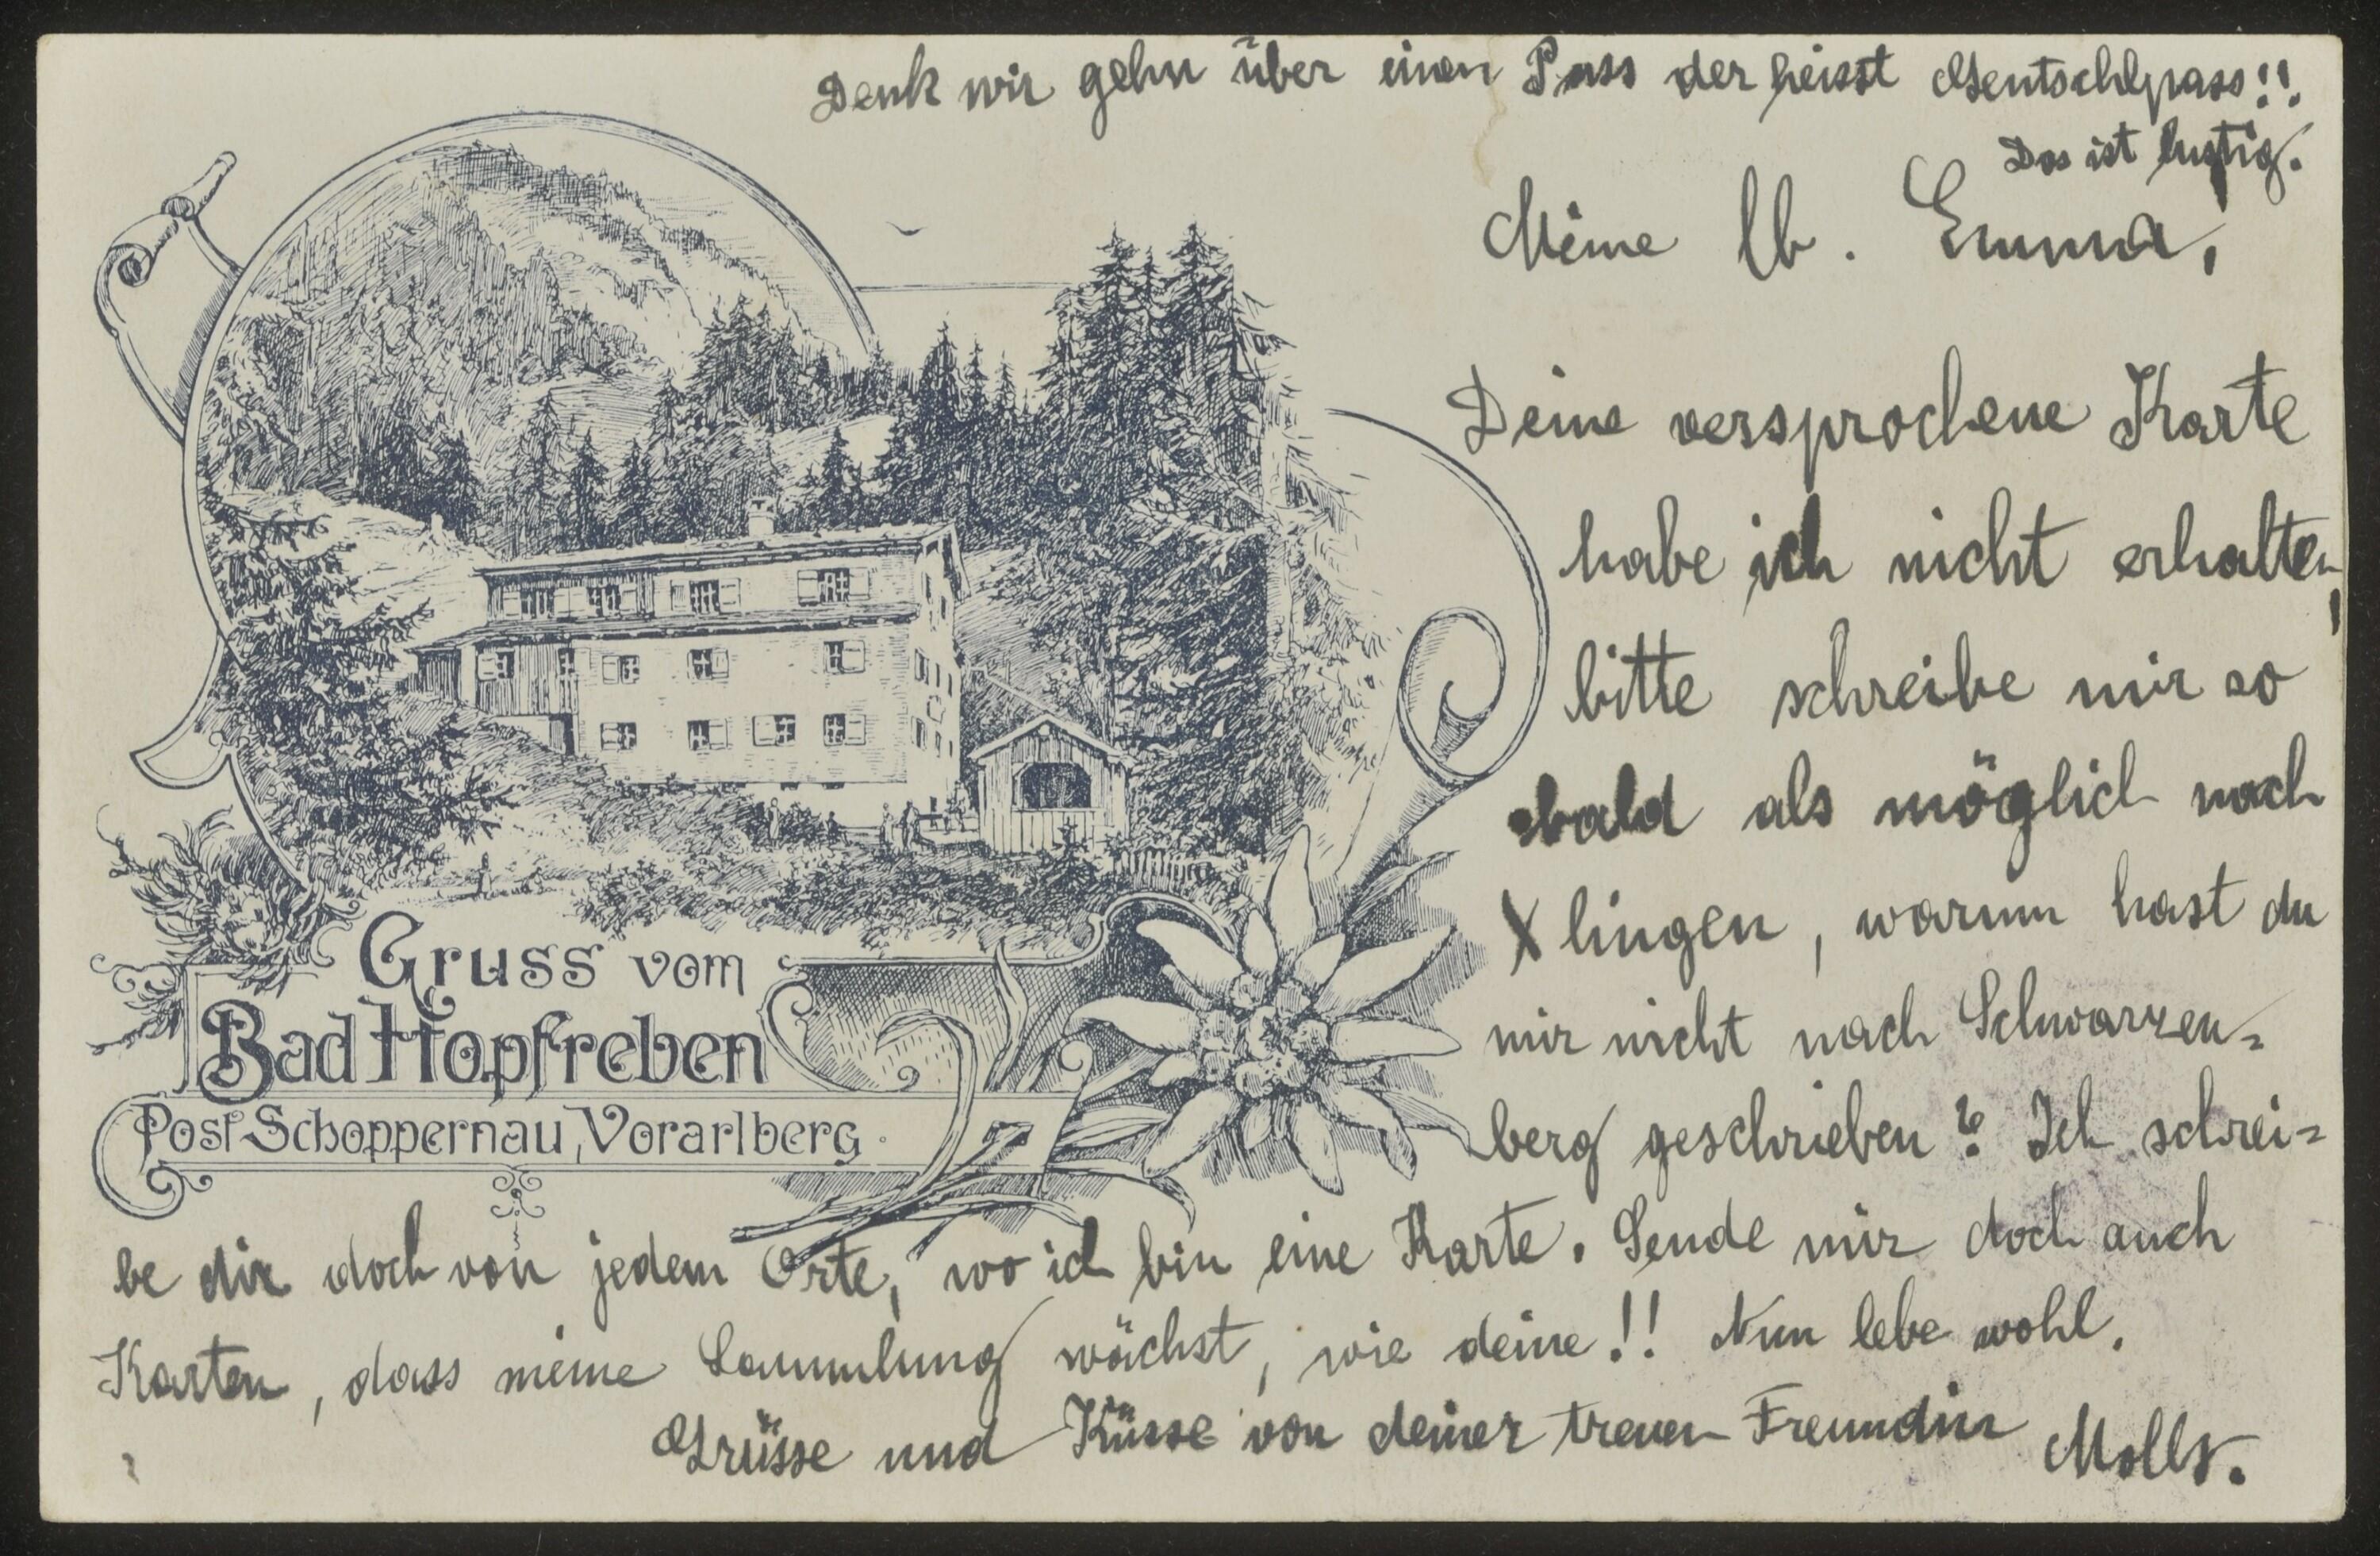 Denk wir gehn über einen Pass der heisst Gentschlpass!!
Das ist lustig.
Meine lb. Emma,
Deine versprochene Karte
habe ich nicht erhalten,
bitte schreibe mir so
bald als möglich nach
X lingen, warum hast du
mir nicht nach Schwarzen=
berg geschrieben? Ich schrei=
be dir doch von jedem Orte, wo ich bin eine Karte. Sende mir doch auch
Karten, dass meine Sammlung wächst, wie deine!! Nun lebe wohl.
Grüsse und Küsse von deiner treuen Freundin Molly.
Gruss vom
Bad Hopfreben
Post Schoppernau, Vorarlberg.